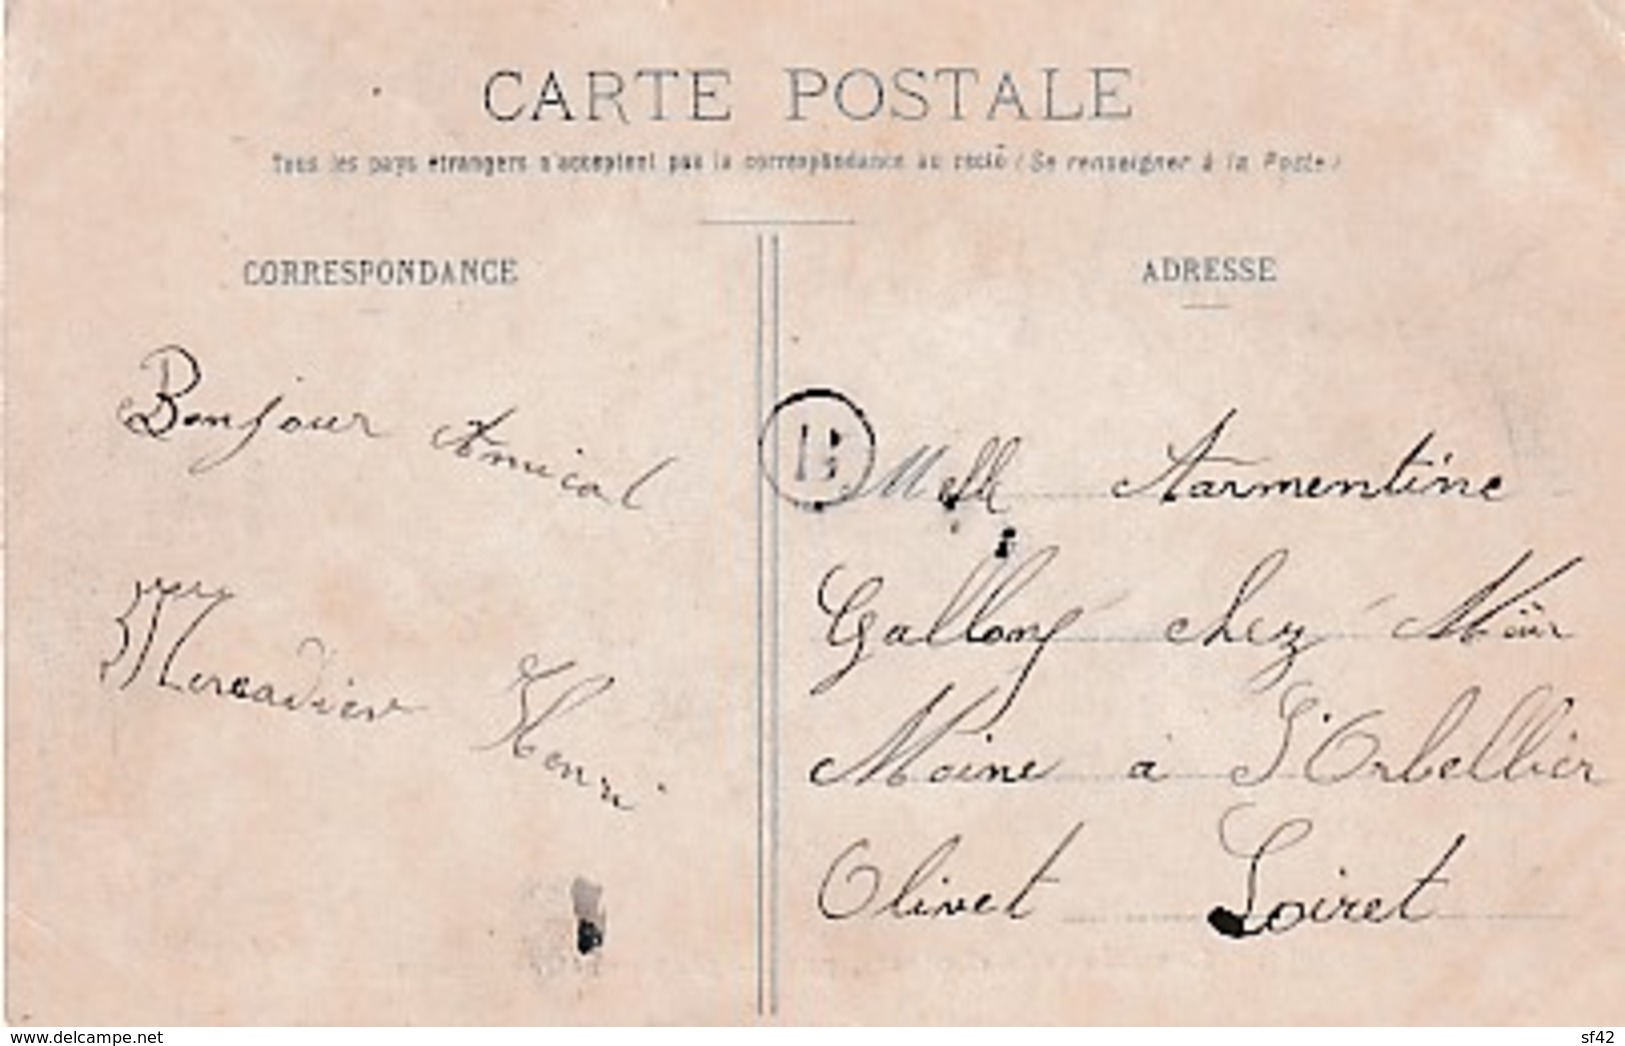 CARTE POSTALE
Tous les pays étrangers n'acceptent pas la correspondance au recto (Se renseigner à la Poste)
CORRESPONDANCE
ADRESSE
Bonjour Amical
Mercadier Henri
B
Melle Armentine
Gallong chez Mr
Moine à l'Orbellier
Olivet Loiret
www.delcampe.net
sf42